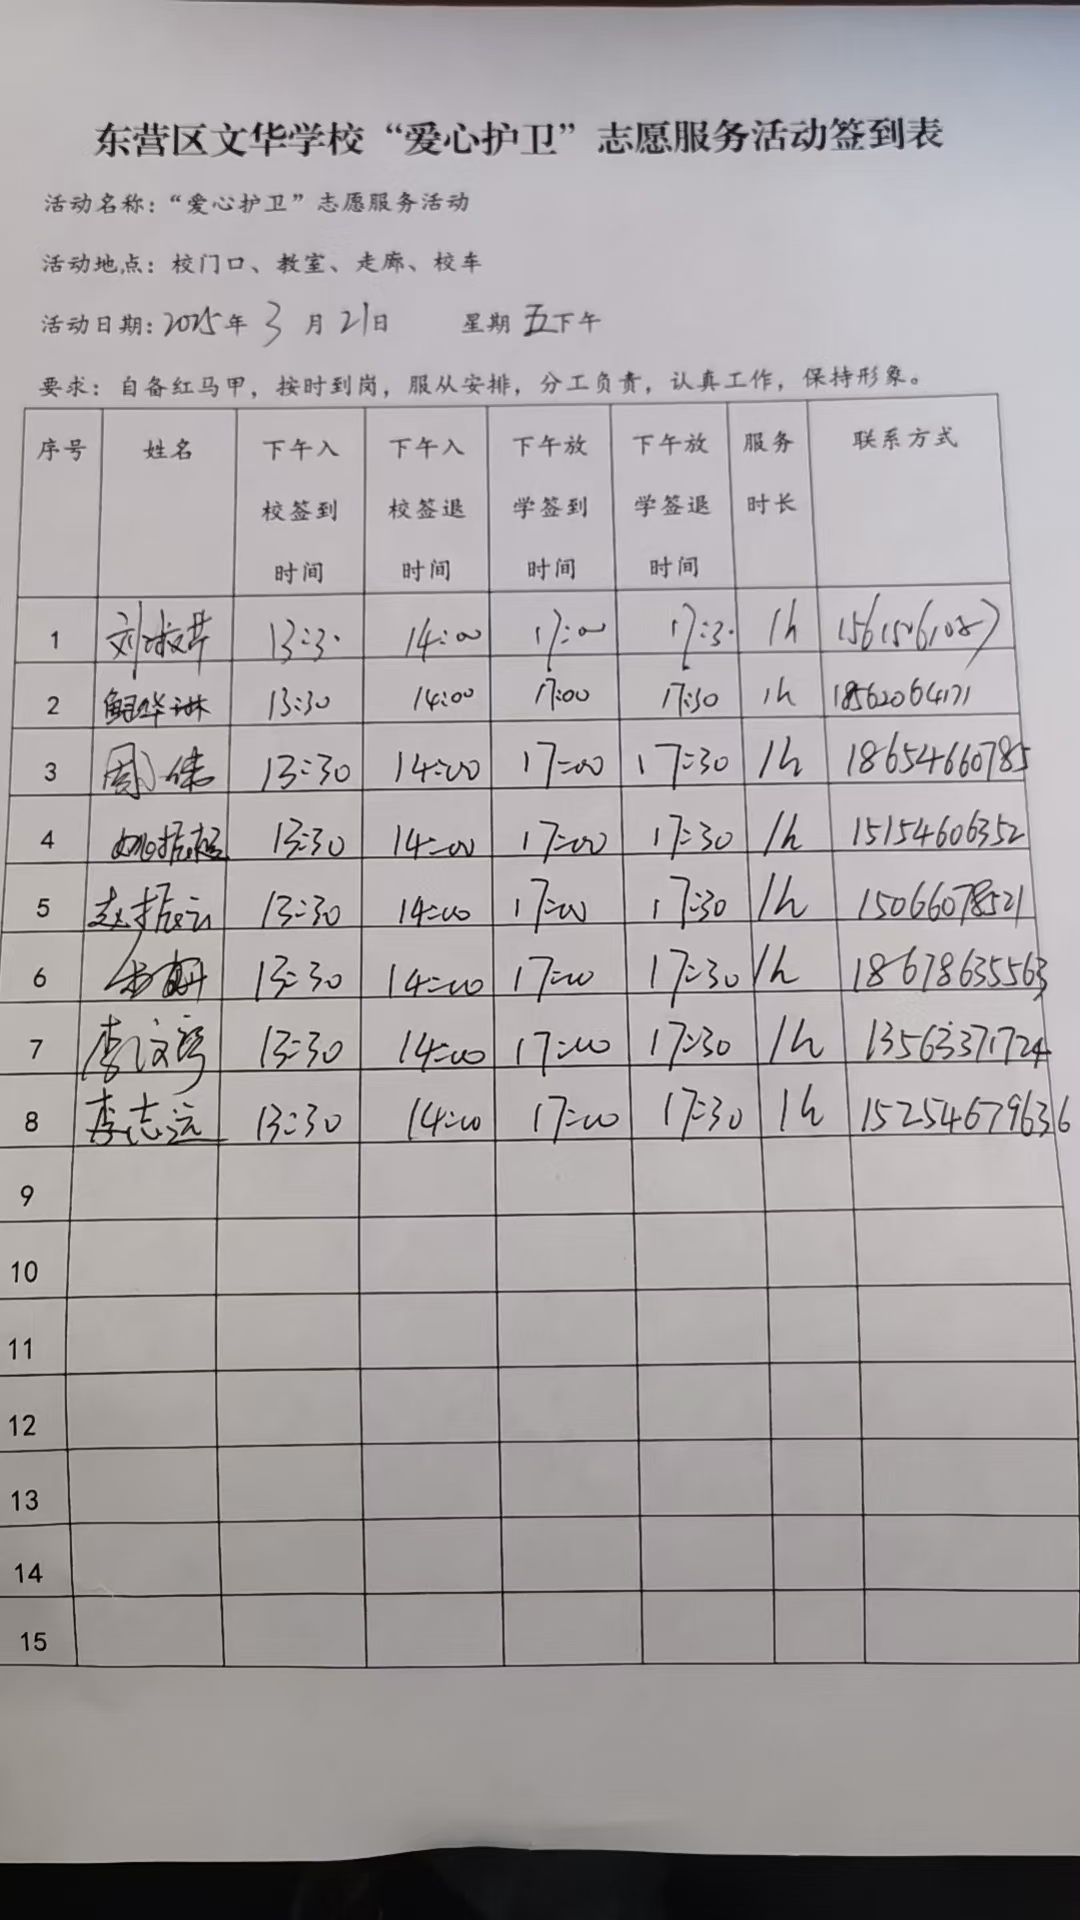 东营区文华学校“爱心护卫”志愿服务活动签到表
活动名称：“爱心护卫”志愿服务活动
活动地点：校门口、教室、走廊、校车
活动日期：2025年 3 月 21日 星期 五下午
要求：自备红马甲，按时到岗，服从安排，分工负责，认真工作，保持形象。
序号 姓名 下午入校签到时间 下午入校签退时间 下午放学签到时间 下午放学签退时间 服务时长 联系方式
1 13:30 14:00 17:00 17:30 1h
2 13:30 14:00 17:00 17:30 1h 18562064171
3 周伟 13:30 14:00 17:00 17:30 1h 18654660785
4 13:30 14:00 17:00 17:30 1h 15154606352
5 赵振云 13:30 14:00 17:00 17:30 1h 15066078521
6 13:30 14:00 17:00 17:30 1h 18678635563
7 13:30 14:00 17:00 17:30 1h 13563371724
8 李志远 13:30 14:00 17:00 17:30 1h 15254679636
9
10
11
12
13
14
15